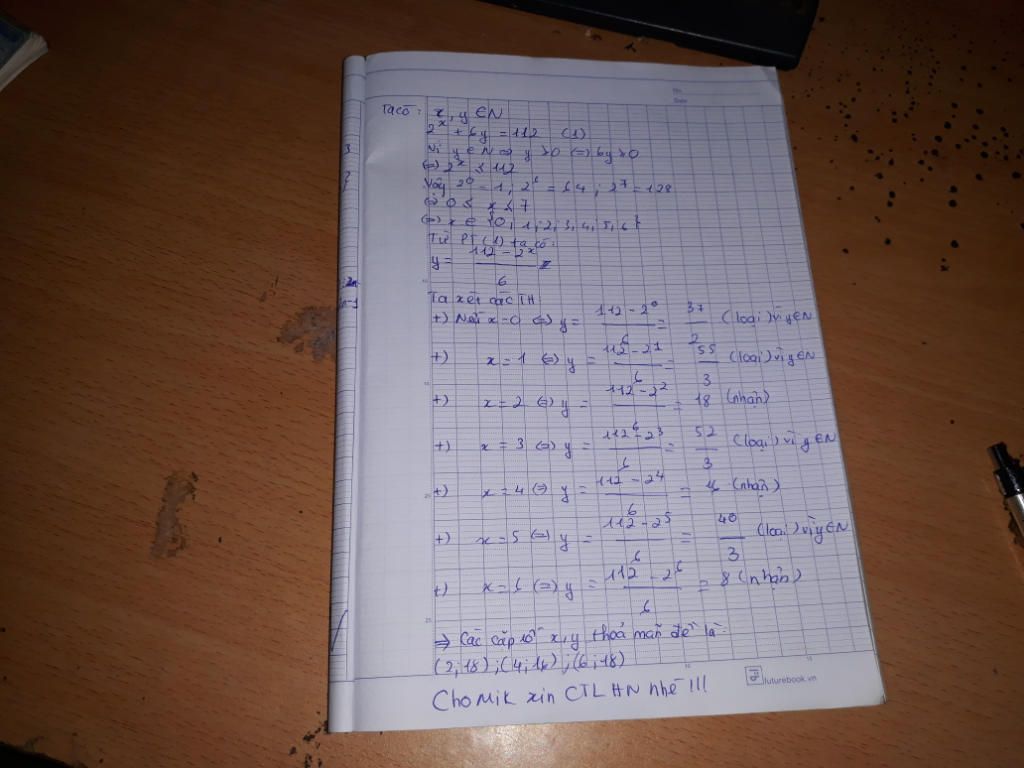 No.
Date
Ta có: x, y ∈ N
2^x + 6y = 112 (1)
Vì y ∈ N ⇒ y ≥ 0 ⇔ 6y ≥ 0
⇔ 2^x ≤ 112
Vậy 2^0 = 1, 2^6 = 64; 2^7 = 128
⇔ 0 ≤ x < 7
⇔ x ∈ {0, 1; 2; 3, 4, 5, 6}
Từ PT (1) ta có:
y = (112 - 2^x)/6
Ta xét các TH
+) Nếu x = 0 ⇔ y = (112 - 2^0)/6 = 37/2 (loại) vì y∈N
+) x = 1 ⇔ y = (112 - 2^1)/6 = 55/3 (loại) vì y∈N
+) x = 2 ⇔ y = (112 - 2^2)/6 = 18 (nhận)
+) x = 3 ⇔ y = (112 - 2^3)/6 = 52/3 (loại) vì y∈N
+) x = 4 ⇔ y = (112 - 2^4)/6 = (nhận)
+) x = 5 ⇔ y = (112 - 2^5)/6 = 40/3 (loại) vì y∈N
+) x = 6 ⇔ y = (112 - 2^6)/6 = 8 (nhận)
⇒ Các cặp số x, y thoả mãn đề là:
(2;18); (4; 16); (6; 18)
Cho Mik xin CTLHN nhé !!!
futurebook.vn